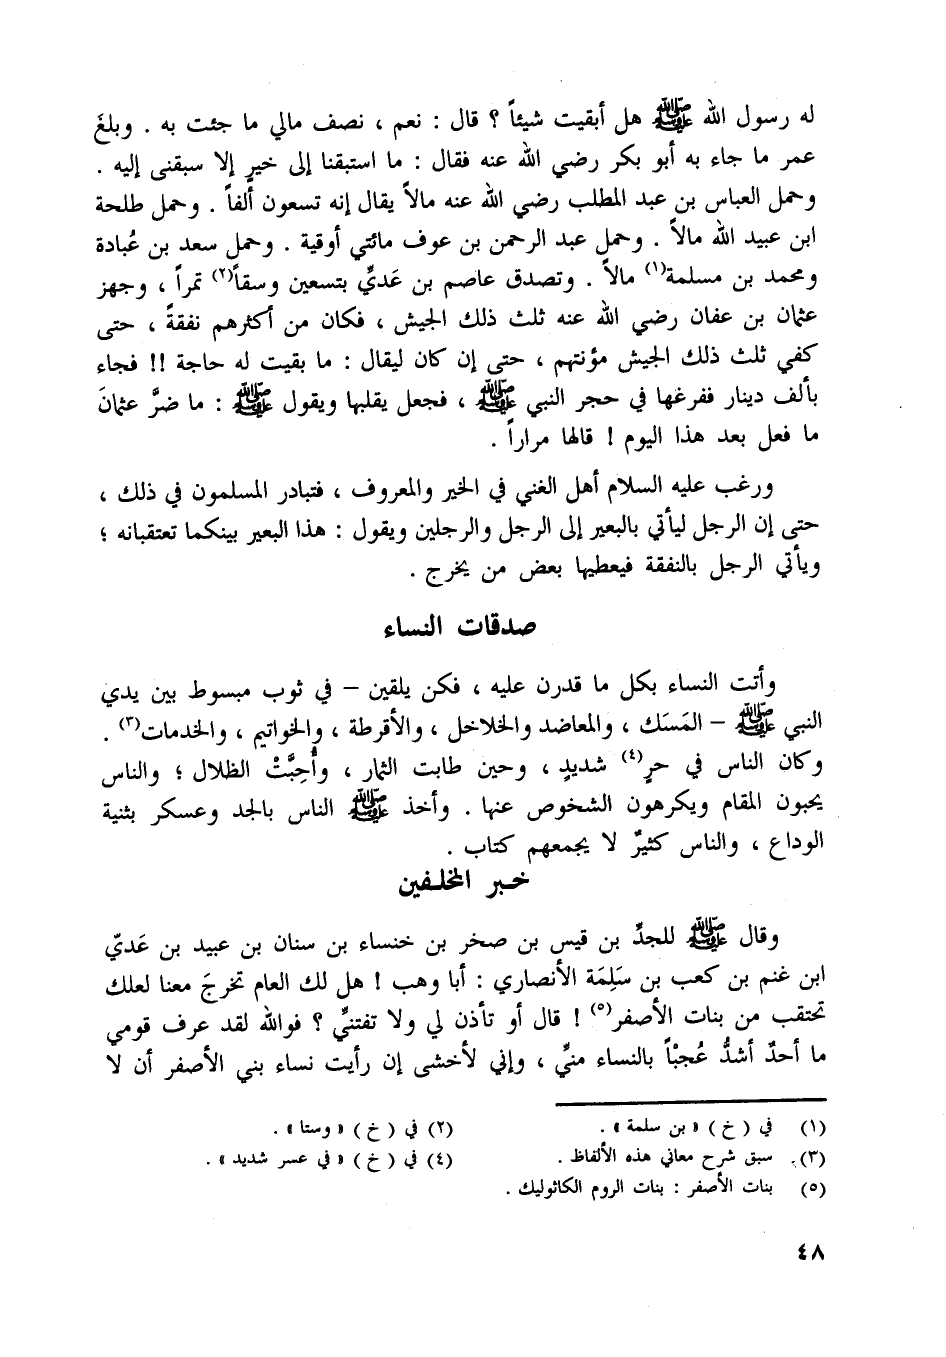 له رسول الله ﷺ هل أبقيت شيئاً ؟ قال : نعم ، نصف مالي ما جئت به . وبلغَ
عمر ما جاء به أبو بكر رضي الله عنه فقال : ما استبقنا إلى خيرٍ إلا سبقنى إليه .
وحمل العباس بن عبد المطلب رضي الله عنه مالاً يقال إنه تسعون ألفاً . وحمل طلحة
ابن عبيد الله مالاً . وحمل عبد الرحمن بن عوف مائتي أوقية . وحمل سعد بن عُبادة
ومحمد بن مسلمة(١) مالاً . وتصدق عاصم بن عَديٍّ بتسعين وسقاً(٢) تمراً ، وجهز
عثمان بن عفان رضي الله عنه ثلث ذلك الجيش ، فكان من أكثرهم نفقةً ، حتى
كفي ثلث ذلك الجيش مؤنتهم ، حتى إن كان ليقال : ما بقيت له حاجة !! فجاء
بألف دينار ففرغها في حجر النبي ﷺ ، فجعل يقلبها ويقول ﷺ : ما ضرَّ عثمانَ
ما فعل بعد هذا اليوم ! قالها مراراً .
ورغب عليه السلام أهل الغني في الخير والمعروف ، فتبادر المسلمون في ذلك ،
حتى إن الرجل ليأتي بالبعير إلى الرجل والرجلين ويقول : هذا البعير بينكما تعتقبانه ؛
ويأتي الرجل بالنفقة فيعطيها بعض من يخرج .
صدقات النساء
وأتت النساء بكل ما قدرن عليه ، فكن يلقين – في ثوب مبسوط بين يدي
النبي ﷺ – المَسَك ، والمعاضد والخلاخل ، والأقرطة ، والخواتيم ، والخدمات(٣) .
وكان الناس في حرٍ(٤) شديدٍ ، وحين طابت الثمار ، وأُحِبَّتْ الظلال ؛ والناس
يحبون المقام ويكرهون الشخوص عنها . وأخذ ﷺ الناس بالجد وعسكر بثنية
الوداع ، والناس كثيرٌ لا يجمعهم كتاب .
خبر المخلفين
وقال ﷺ للجدِّ بن قيس بن صخر بن خنساء بن سنان بن عبيد بن عَديّ
ابن غنم بن كعب بن سَلِمَة الأنصاري : أبا وهب ! هل لك العام تخرجَ معنا لعلك
تحتقب من بنات الأصفر(٥) ! قال أو تأذن لي ولا تفتنيِّ ؟ فوالله لقد عرف قومي
ما أحدٌ أشدُّ عُجبْاً بالنساء منيِّ ، وإني لأخشى إن رأيت نساء بني الأصفر أن لا
(١) في ( خ ) « بن سلمة » .
(٢) في ( خ ) « وستا » .
(٣) سبق شرح معاني هذه الألفاظ .
(٤) في ( خ ) « في عسر شديد » .
(٥) بنات الأصفر : بنات الروم الكاثوليك .
٤٨